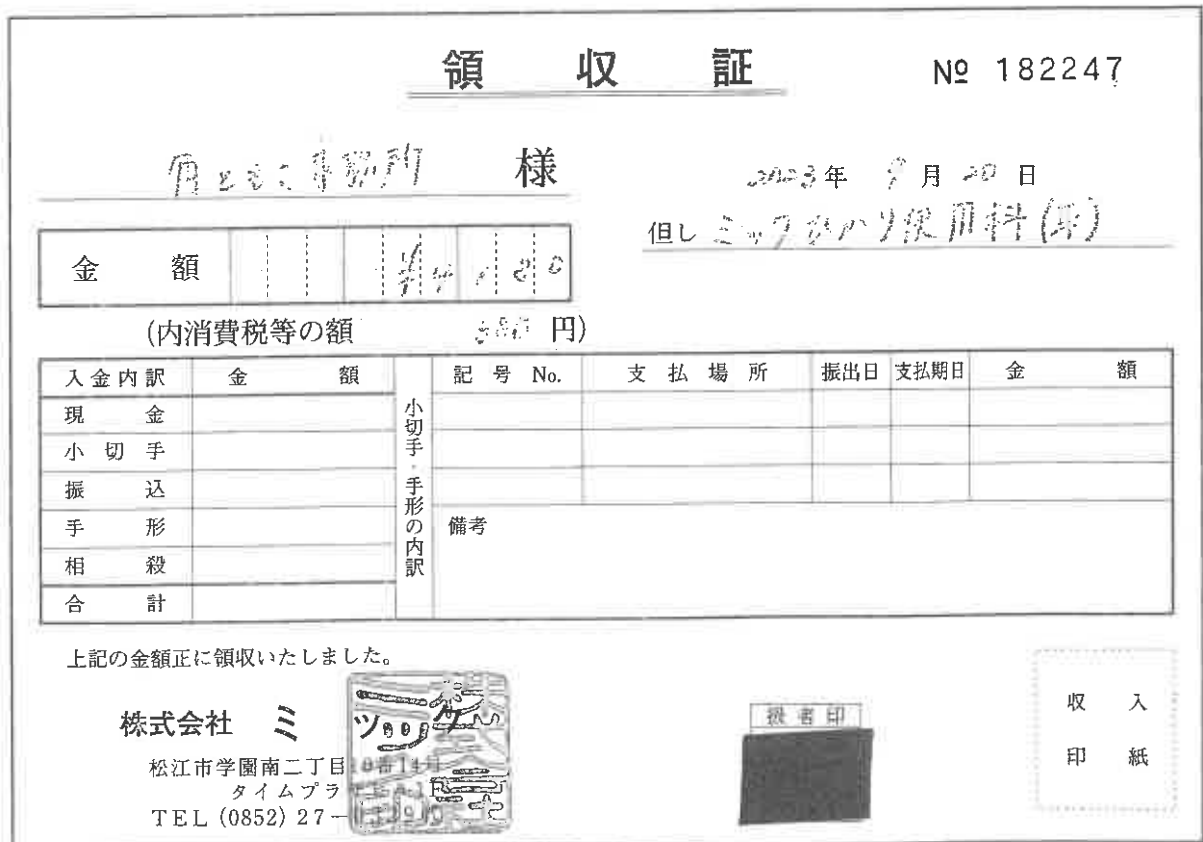 領収証
№ 182247
角ともこ事務所 様
2023年 9月 20日
但し ミックひかり使用料(7月)
金額 ¥4,180
(内消費税等の額 380 円)
入金内訳 金額
現金
小切手
振込
手形
相殺
合計
小切手・手形の内訳
記号 No. 支払場所 振出日 支払期日 金額
備考
上記の金額正に領収いたしました。
株式会社 ミック
松江市学園南二丁目10番14号
タイムプラ
TEL (0852) 27-
扱者印
収入
印紙